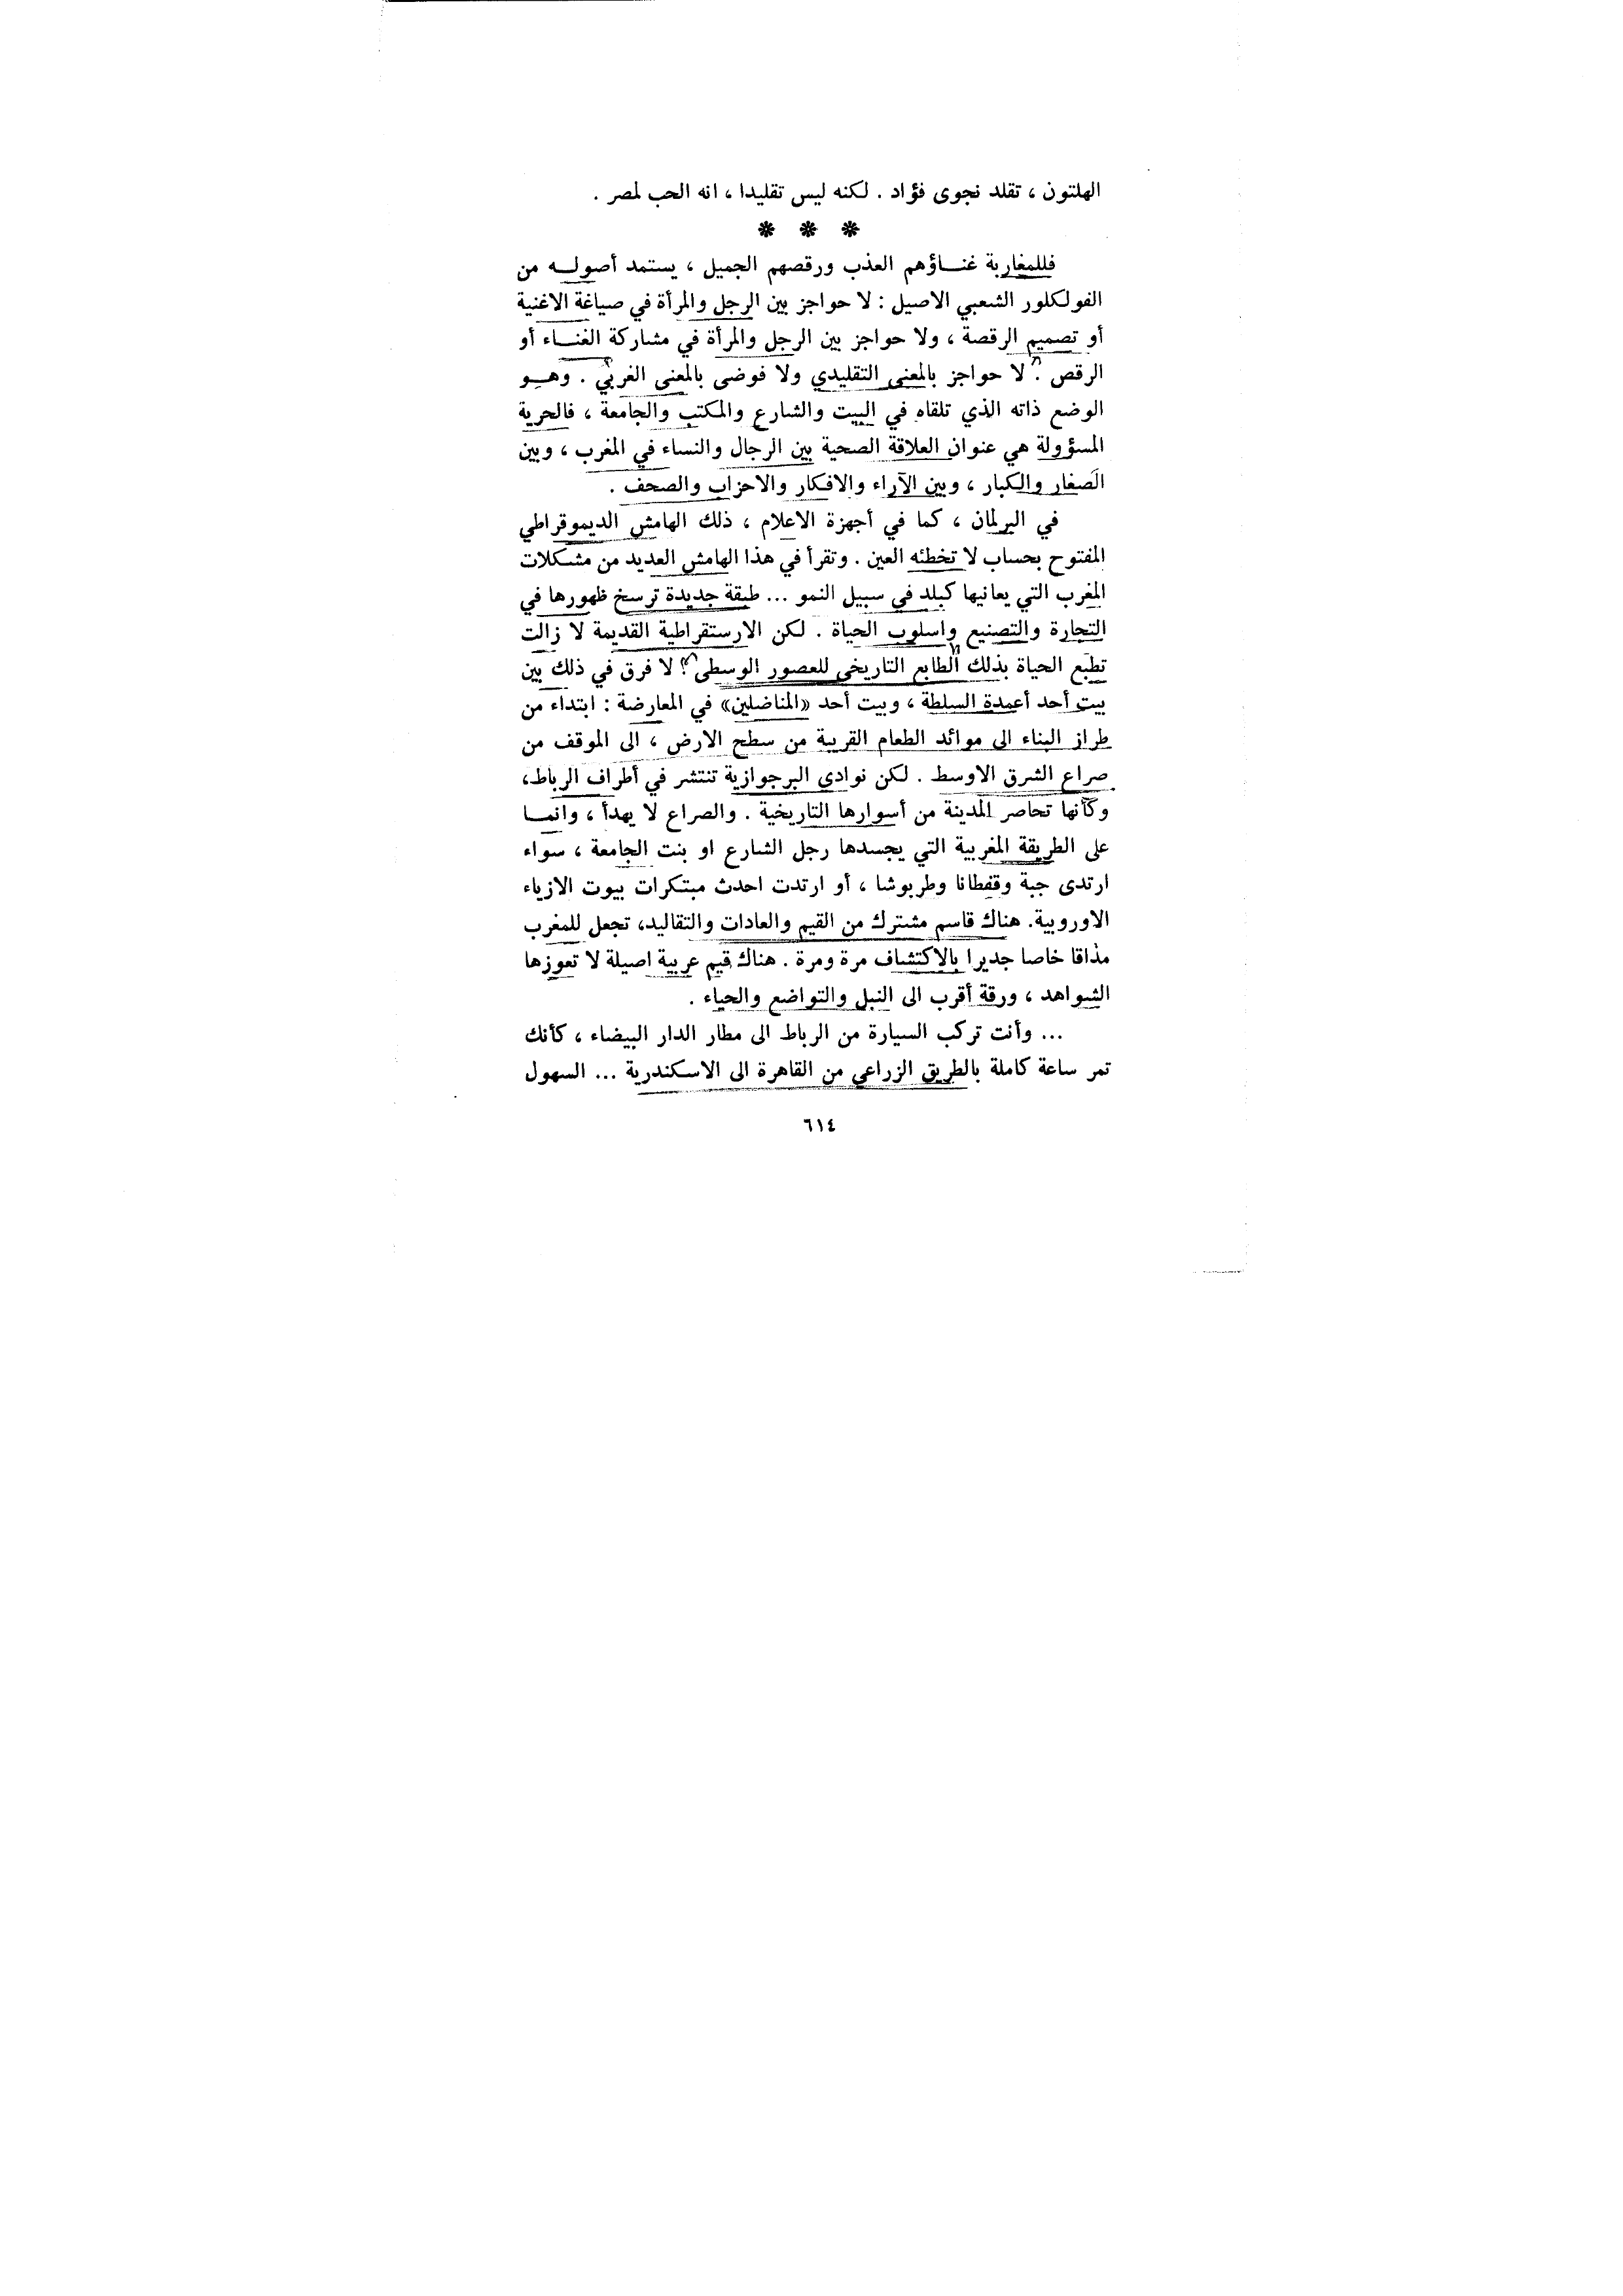 الهلتون ، تقلد نجوى فؤاد . لكنه ليس تقليدا ، انه الحب لمصر .
* * *
فللمغاربة غنــاؤهم العذب ورقصهم الجميل ، يستمد أصولــه من
الفولكلور الشعبي الاصيل : لا حواجز بين الرجل والمرأة في صياغة الاغنية
أو تصميم الرقصة ، ولا حواجز بين الرجل والمرأة في مشاركة الغنــاء أو
الرقص . لا حواجز بالمعنى التقليدي ولا فوضى بالمعنى الغربي . وهــو
الوضع ذاته الذي تلقاه في البيت والشارع والمكتب والجامعة ، فالحرية
المسؤولة هي عنوان العلاقة الصحية بين الرجال والنساء في المغرب ، وبين
الصغار والكبار ، وبين الآراء والافكار والاحزاب والصحف .
في البرلمان ، كما في أجهزة الاعلام ، ذلك الهامش الديموقراطي
المفتوح بحساب لا تخطئه العين . وتقرأ في هذا الهامش العديد من مشكلات
المغرب التي يعانيها كبلد في سبيل النمو ... طبقة جديدة ترسخ ظهورها في
التجارة والتصنيع واسلوب الحياة . لكن الارستقراطية القديمة لا زالت
تطبع الحياة بذلك الطابع التاريخي للعصور الوسطى ؟ لا فرق في ذلك بين
بيت أحد أعمدة السلطة ، وبيت أحد «المناضلين» في المعارضة : ابتداء من
طراز البناء الى موائد الطعام القريبة من سطح الارض ، الى الموقف من
صراع الشرق الاوسط . لكن نوادي البرجوازية تنتشر في أطراف الرباط،
وكأنها تحاصر المدينة من أسوارها التاريخية . والصراع لا يهدأ ، وانمــا
على الطريقة المغربية التي يجسدها رجل الشارع او بنت الجامعة ، سواء
ارتدى جبة وقفطانا وطربوشا ، أو ارتدت احدث مبتكرات بيوت الازياء
الاوروبية. هناك قاسم مشترك من القيم والعادات والتقاليد، تجعل للمغرب
مذاقا خاصا جديرا بالاكتشاف مرة ومرة . هناك قيم عربية اصيلة لا تعوزها
الشواهد ، ورقة أقرب الى النبل والتواضع والحياء .
... وأنت تركب السيارة من الرباط الى مطار الدار البيضاء ، كأنك
تمر ساعة كاملة بالطريق الزراعي من القاهرة الى الاسكندرية ... السهول
٦١٤